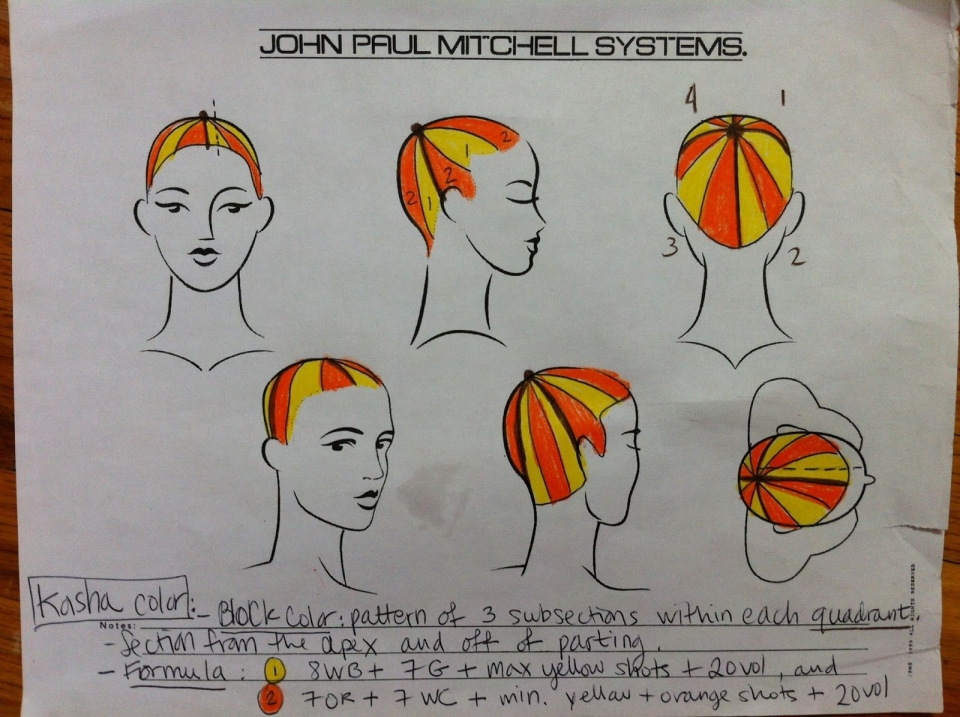 JOHN PAUL MITCHELL SYSTEMS.
4 1
2
1
2
2 1
3 2
Kasha color: - Block Color: pattern of 3 subsections within each quadrant.
Notes:
- Section from the apex and off of parting.
- Formula: 1 8WB + 7G + max yellow shots + 20vol, and
2 7OR + 7WC + min. yellow + orange shots + 20vol